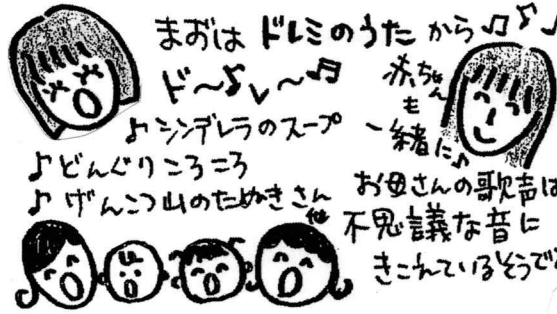 まずは ドレミのうた から♫♪♪
ド〜♪レ〜♬
♪シンデレラのスープ
♪どんぐりころころ
♪げんこつ山のたぬきさん
他
赤ちゃん
も
一緒に♪
お母さんの歌声は
不思議な音に
きこえているそうで